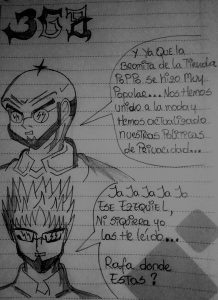 Y Ya que la
Bromita de la Tienda
PoPiS, se Hizo Muy
Popular... Nos Hemos
Unido a la moda y
Hemos actualizado
nuestras Politicas
de Privacidad...
Ja Ja Ja Ja Jo
ESE EZEQUIEL,
Ni SiQuiera yo
las He leido...
Rafa donde
Estas?